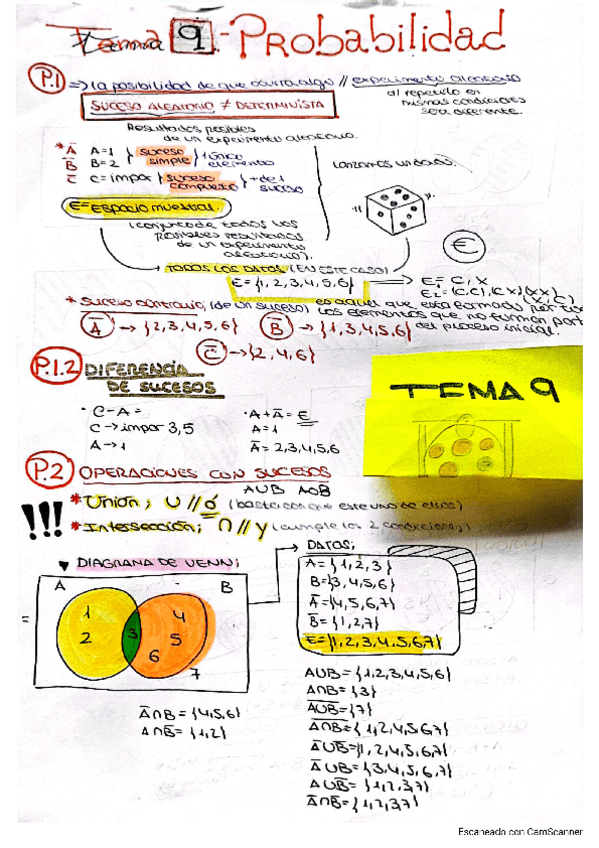 Tema 9.- Probabilidad
P.1 => la posibilidad de que ocurra algo // experimento aleatorio
al repetirlo en
mismas condiciones
sera diferente.
SUCESO ALEATORIO ≠ DETERMINISTA
Resultados posibles
de un experimento aleatorio.
* A̅ A=1 } suceso simple } 1 único elemento
B̅ B=2
C̅ C=impar } suceso compuesto } + de 1 suceso
Lanzamos un dado.
E= ESPACIO MUESTRAL
(conjunto de todos los
posibles resultados
de un experimento
aleatorio).
TODOS LOS DATOS (EN ESTE CASO)
E={1,2,3,4,5,6}
€
E₁= C, X
E₂= (C,C),(C,X)(X,X)
(X,C)
* Suceso contrario; (de un suceso) es aquel que esta formado por
los elementos que no forman
del proceso inicial.
A̅ → {2,3,4,5,6} B̅ → {1,3,4,5,6}
C̅ → {2,4,6}
P.1.2 DIFERENCIA
DE SUCESOS
· C-A =
C → impar 3,5
A → 1
· A+A̅ = E
A=1
A̅ = 2,3,4,5,6
TEMA 9
P.2 OPERACIONES CON SUCESOS
AUB AOB
!!! * Unión; U // ó (basta con que este uno de ellos)
* Intersección; ∩ // y (cumple las 2 condiciones)
▼ DIAGRANA DE VENN;
A B
1
2
3
4
5
6
7
=
A̅∩B = {4,5,6}
A∩B̅ = {1,2}
DATOS;
A = {1,2,3}
B={3,4,5,6}
A̅={4,5,6,7}
B̅= {1,2,7}
E={1,2,3,4,5,6,7}
AUB = {1,2,3,4,5,6}
A∩B = {3}
A̅U̅B̅ = {7}
A̅∩̅B̅={1,2,4,5,6,7}
A̅UB̅={1,2,4,5,6,7}
A̅UB={3,4,5,6,7}
AUB̅ = {1,2,3,7}
A̅∩B̅= {1,2,3,7}
Escaneado con CamScanner